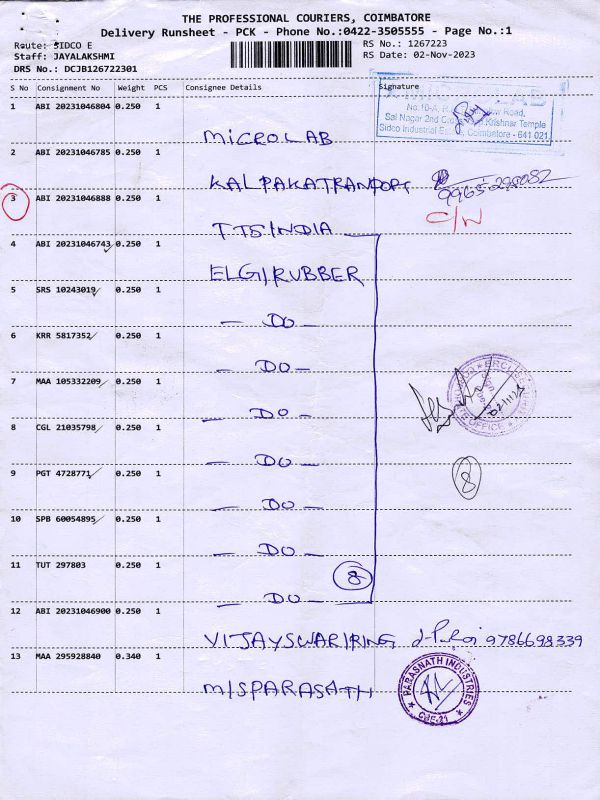 THE PROFESSIONAL COURIERS, COIMBATORE
Delivery Runsheet - PCK - Phone No.:0422-3505555 - Page No.:1
Route: SIDCO E
Staff: JAYALAKSHMI
DRS No.: DCJB126722301
RS No.: 1267223
RS Date: 02-Nov-2023
S No Consignment No Weight PCS Consignee Details Signature
1 ABI 20231046804 0.250 1
No.10-A, Road,
Sai Nagar 2nd Krishnar Temple
Sidco Industrial Coimbatore - 641 021
MICROLAB
2 ABI 20231046785 0.250 1
KALPAKATRANPORT 9965298082
3 ABI 20231046888 0.250 1
C/N
TTS INDIA
4 ABI 20231046743 0.250 1
ELGI RUBBER
5 SRS 10243019 0.250 1
- DO -
6 KRR 5817352 0.250 1
- DO -
7 MAA 105332209 0.250 1
- DO -
8 CGL 21035798 0.250 1
- DO -
9 PGT 4728771 0.250 1
8
- DO -
10 SPB 60054895 0.250 1
- DO -
11 TUT 297803 0.250 1
8
- DO -
12 ABI 20231046900 0.250 1
VIJAYSWARIRING 9786698339
13 MAA 295928840 0.340 1
M/SPARASATH
PARASNATH INDUSTRIES
CBE-21